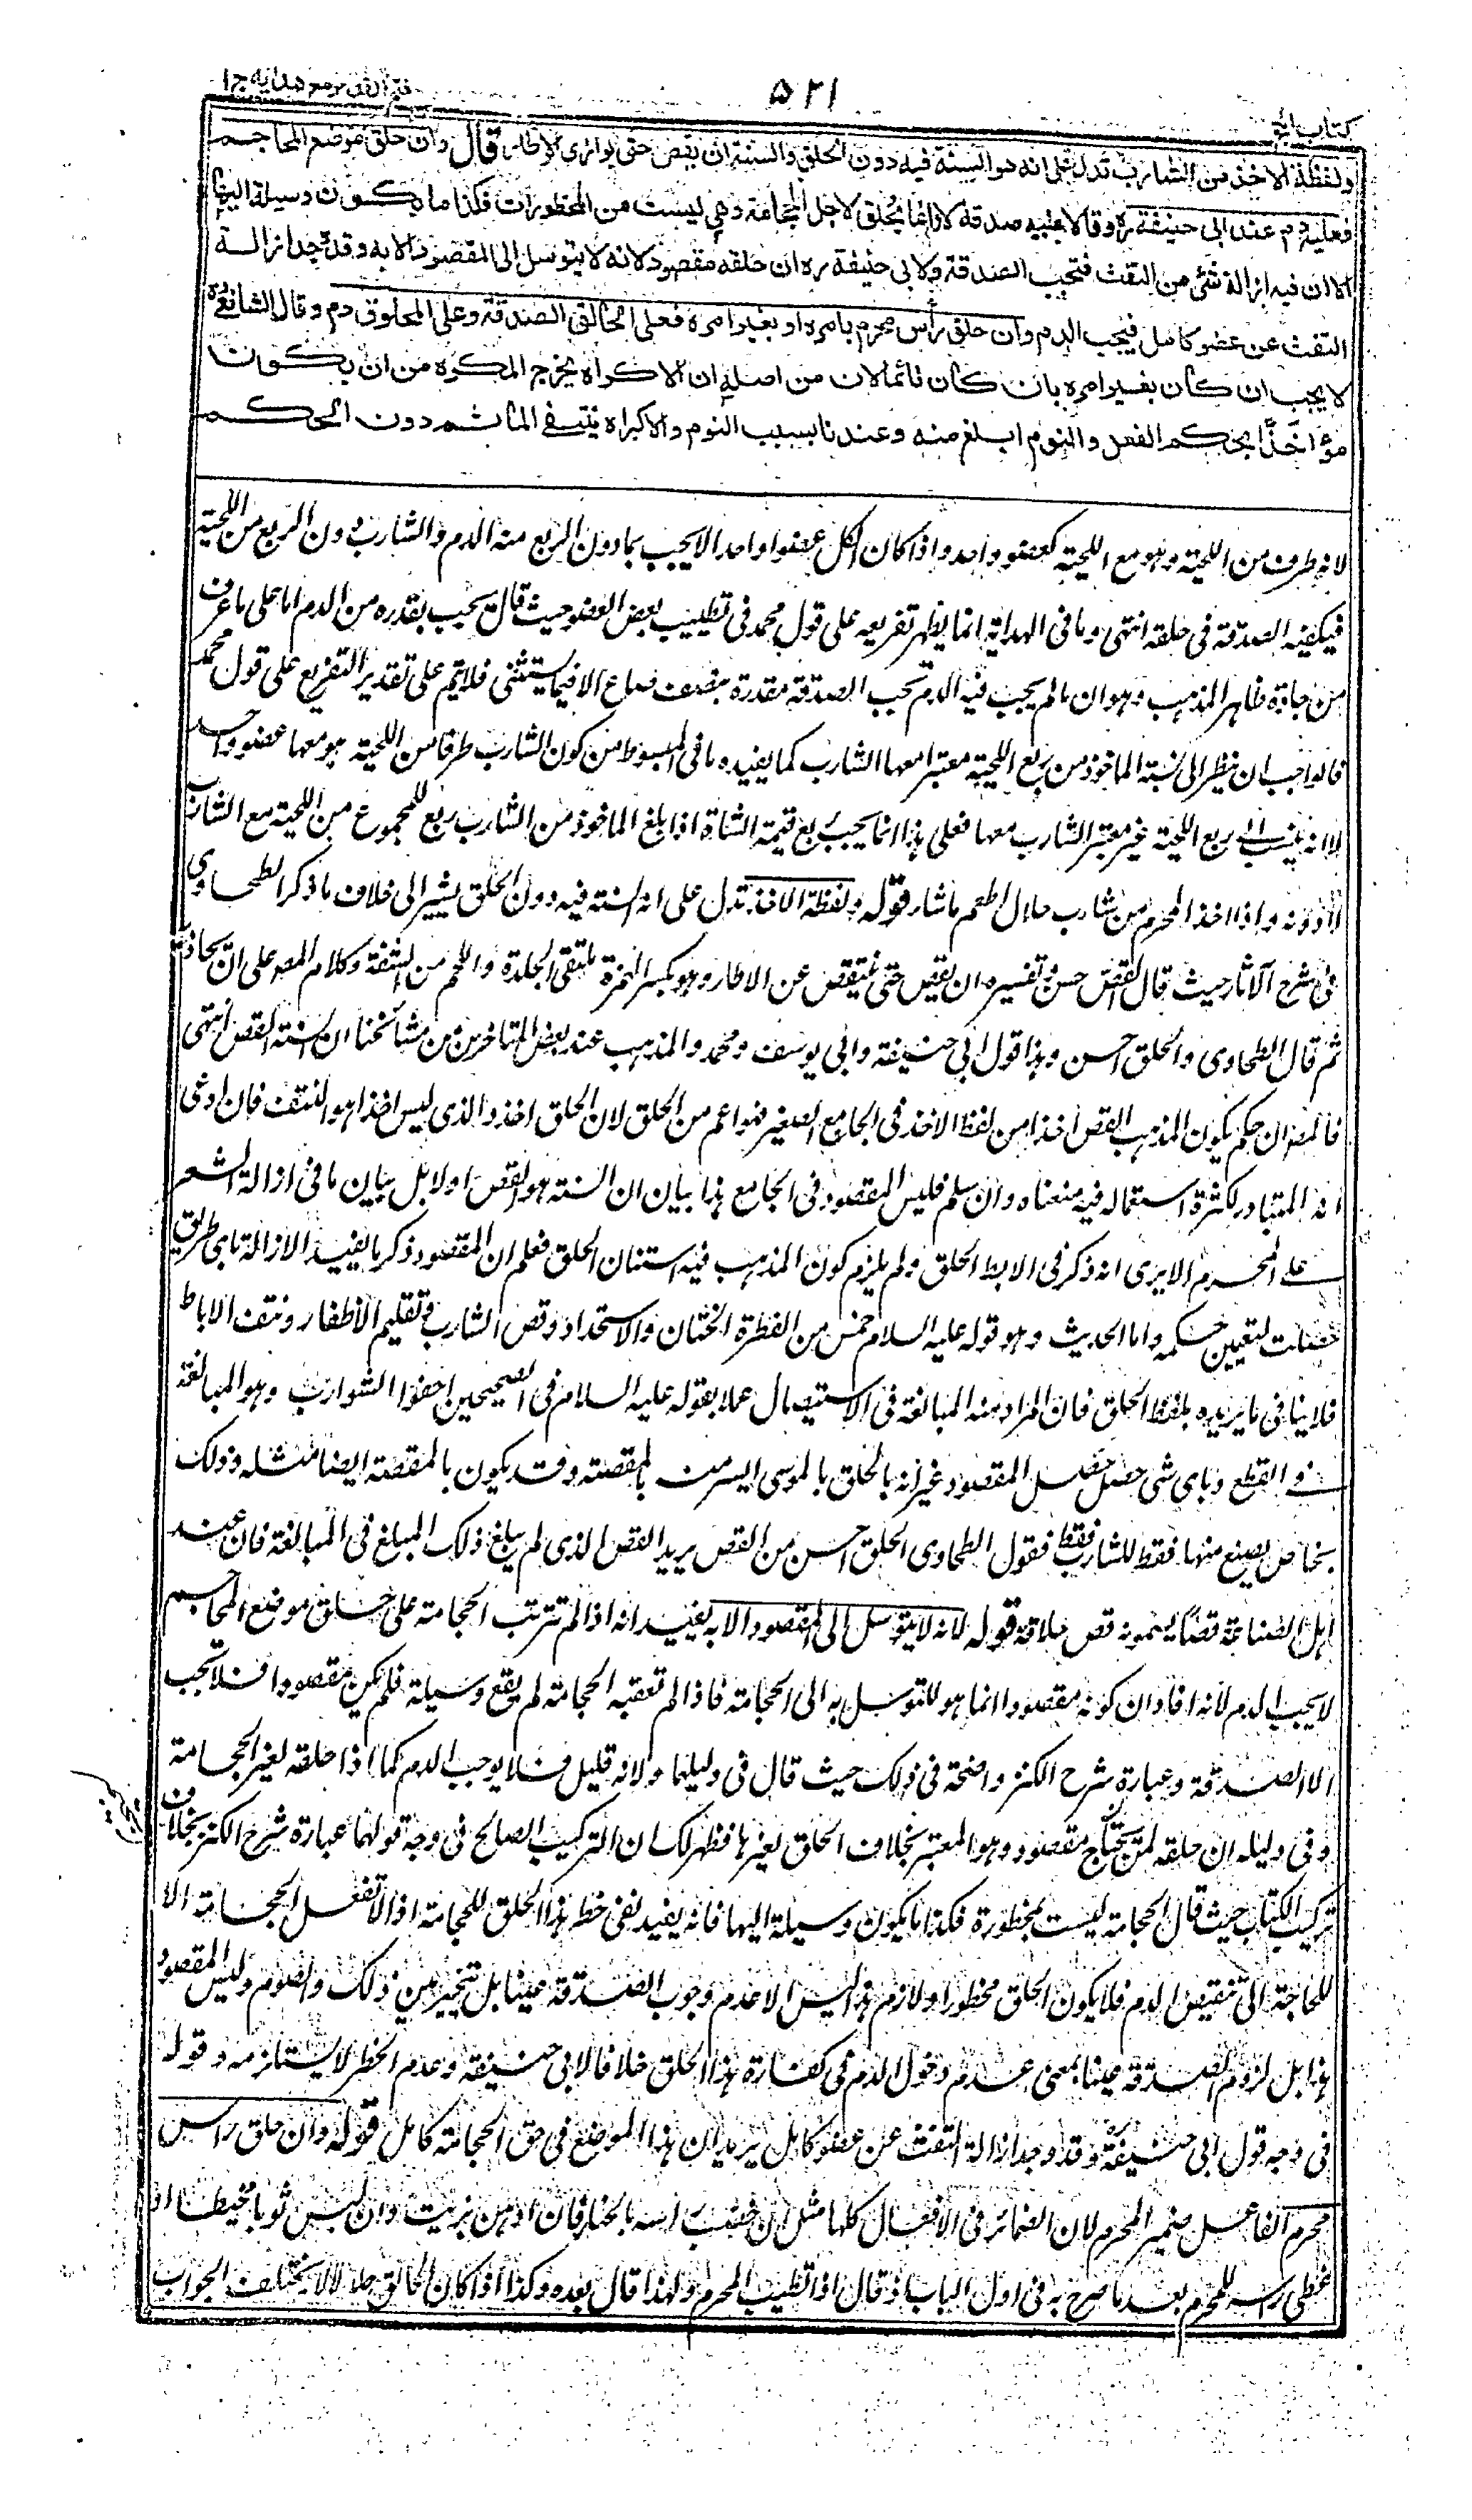 كتاب الحج
٥٢١
فتح القدير مع هداية ج ١
ولفظة الاخذ من الشارب تدل على انه هو السنة فيه دون الحلق والسنة ان يقص حتى يوازى الاطار قال وان حلق موضع المحاجم
فعليه دم عند ابى حنيفة ره وقالا عليه صدقة لانه انما يحلق لاجل الحجامة وهى ليست من المحظورات فكذا ما يكون وسيلة اليها
الا ان فيه ازالة شئ من التفث فتجب الصدقة ولابى حنيفة ره ان حلقه مقصود لانه لا يتوسل الى المقصود الا به وقد وجد ازالة
التفث عن عضو كامل فيجب الدم وان حلق رأس محرم بامره او بغير امره فعلى الحالق الصدقة وعلى المحلوق دم وقال الشافعى ره
لا يجب ان كان بغير امره بان كان نائما لان من اصله ان الاكراه يخرج المكره من ان يكون
مؤاخذا بحكم الفعل والنوم ابلغ منه وعندنا بسبب النوم والاكراه ينتفى الماثم دون الحكم
لانه طرف من اللحية وهو مع اللحية كعضو واحد واذا كان الكل عضوا واحدا لا يجب بما دون الربع منه الدم والشارب دون الربع من اللحية
فيكفيه الصدقة فى حلقه انتهى وما فى الهداية انما يظهر تفريعه على قول محمد فى تطييب بعض العضو حيث قال يجب بقدره من الدم اما على ما عرف
من جادة ظاهر المذهب وهو ان ما لم يجب فيه الدم تجب الصدقة مقدرة بنصف صاع الا فيما يستثنى فلا يتم على تقدير التفريع على قول محمد
فالواجب ان ينظر الى نسبة الماخوذ من ربع اللحية معتبرا معها الشارب كما يفيده ما فى المبسوط من كون الشارب طرفا من اللحية هو معها عضو واحد
لا انه ينسب الى ربع اللحية غير معتبر الشارب معها فعلى هذا انما يجب ربع قيمة الشاة اذا بلغ الماخوذ من الشارب ربع المجموع من اللحية مع الشارب
لا دونه واذا اخذ المحرم من شارب حلال اطعم ما شاء قوله ولفظة الاخذ تدل على انه السنة فيه دون الحلق يشير الى خلاف ما ذكر الطحاوى
فى شرح الآثار حيث قال القص حسن وتفسيره ان يقص حتى ينتقص عن الاطار وهو بكسر الهمزة ملتقى الجلدة واللحم من الشفة وكلام المص على ان يحاذيه
ثم قال الطحاوى والحلق احسن وهذا قول ابى حنيفة وابى يوسف ومحمد والمذهب عند بعض المتاخرين من مشائخنا ان السنة القص انتهى
فالمص ان حكم بكون المذهب القص اخذا من لفظ الاخذ فى الجامع الصغير فهو اعم من الحلق لان الحلق اخذ والذى ليس اخذا هو النتف فان ادعى
انه المتبادر لكثرة استعماله فيه منعناه وان سلم فليس المقصود فى الجامع هذا بيان ان السنة هو القص او لا بل بيان ما فى ازالة الشعر
على المحرم الا يرى انه ذكر فى الابط الحلق ولم يلزم كون المذهب فيه استنان الحلق فعلم ان المقصود ذكر ما يفيد الازالة باى طريق
حصلت لتعيين حكمه واما الحديث وهو قوله عليه السلام خمس من الفطرة الختان والاستحداد وقص الشارب وتقليم الاظفار ونتف الاباط
فلا ينافى ما يريده بلفظ الحلق فان المراد منه المبالغة فى الاستيصال عملا بقوله عليه السلام فى الصحيحين احفوا الشوارب وهو المبالغة
فى القطع وباى شئ حصل حصل المقصود غير انه بالحلق بالموسى ايسر من بالمقصة وقد يكون بالمقصة ايضا مثله وذلك
بخاص يصنع منها فقط للشارب فقط فقول الطحاوى الحلق احسن من القص يريد القص الذى لم يبلغ ذلك المبلغ فى المبالغة فان عند
اهل الصناعة قصا يسمونه قص حلاقة قوله لانه لا يتوسل الى المقصود الا به يفيد انه اذا لم تترتب الحجامة على حلق موضع المحاجم
لا يجب الدم لانه افاد ان كونه مقصودا انما هو للتوسل به الى الحجامة فاذا لم تعقبه الحجامة لم يقع وسيلة فلم يكن مقصودا فلا تجب
الا الصدقة وعبارة شرح الكنز واضحة فى ذلك حيث قال فى دليلهما ولانه قليل فلا يوجب الدم كما اذا حلقه لغير الحجامة
وفى دليله ان حلقه لمن يحتاج مقصود وهو المعتبر بخلاف الحلق لغيرها فظهر لك ان التركيب الصالح فى وجه قولهما عبارة شرح الكنز بخلاف
تركيب الكتاب حيث قال الحجامة ليست بمحظورة فكذا ما يكون وسيلة اليها فانه يفيد نفى حظر هذا الحلق للحجامة اذ لا تفعل الحجامة الا
للحاجة الى تنقيص الدم فلا يكون الحلق محظورا ولازم هذا ليس الا عدم وجوب الصدقة عينا بل يتخير بين ذلك والصوم وليس المقصود
هذا بل لزوم الصدقة عينا بمعنى عدم دخول الدم فى كفارة هذا الحلق خلافا لابى حنيفة وعدم الحظر لا يستلزمه وقوله
فى وجه قول ابى حنيفة ره وقد وجد ازالة التفث عن عضو كامل يريد ان هذا الموضع فى حق الحجامة كامل قوله وان حلق راس
محرم الفاعل ضمير المحرم لان الضمائر فى الافعال كلها مثل ان خضب راسه بالحناء فان ادهن بزيت وان لبس ثوبا مخيطا او
غطى راسه للمحرم بعد ما صرح به فى اول الباب اذ قال اذا تطيب المحرم ولهذا قال بعده وكذا اذا كان الحالق حلالا لا يختلف الجواب